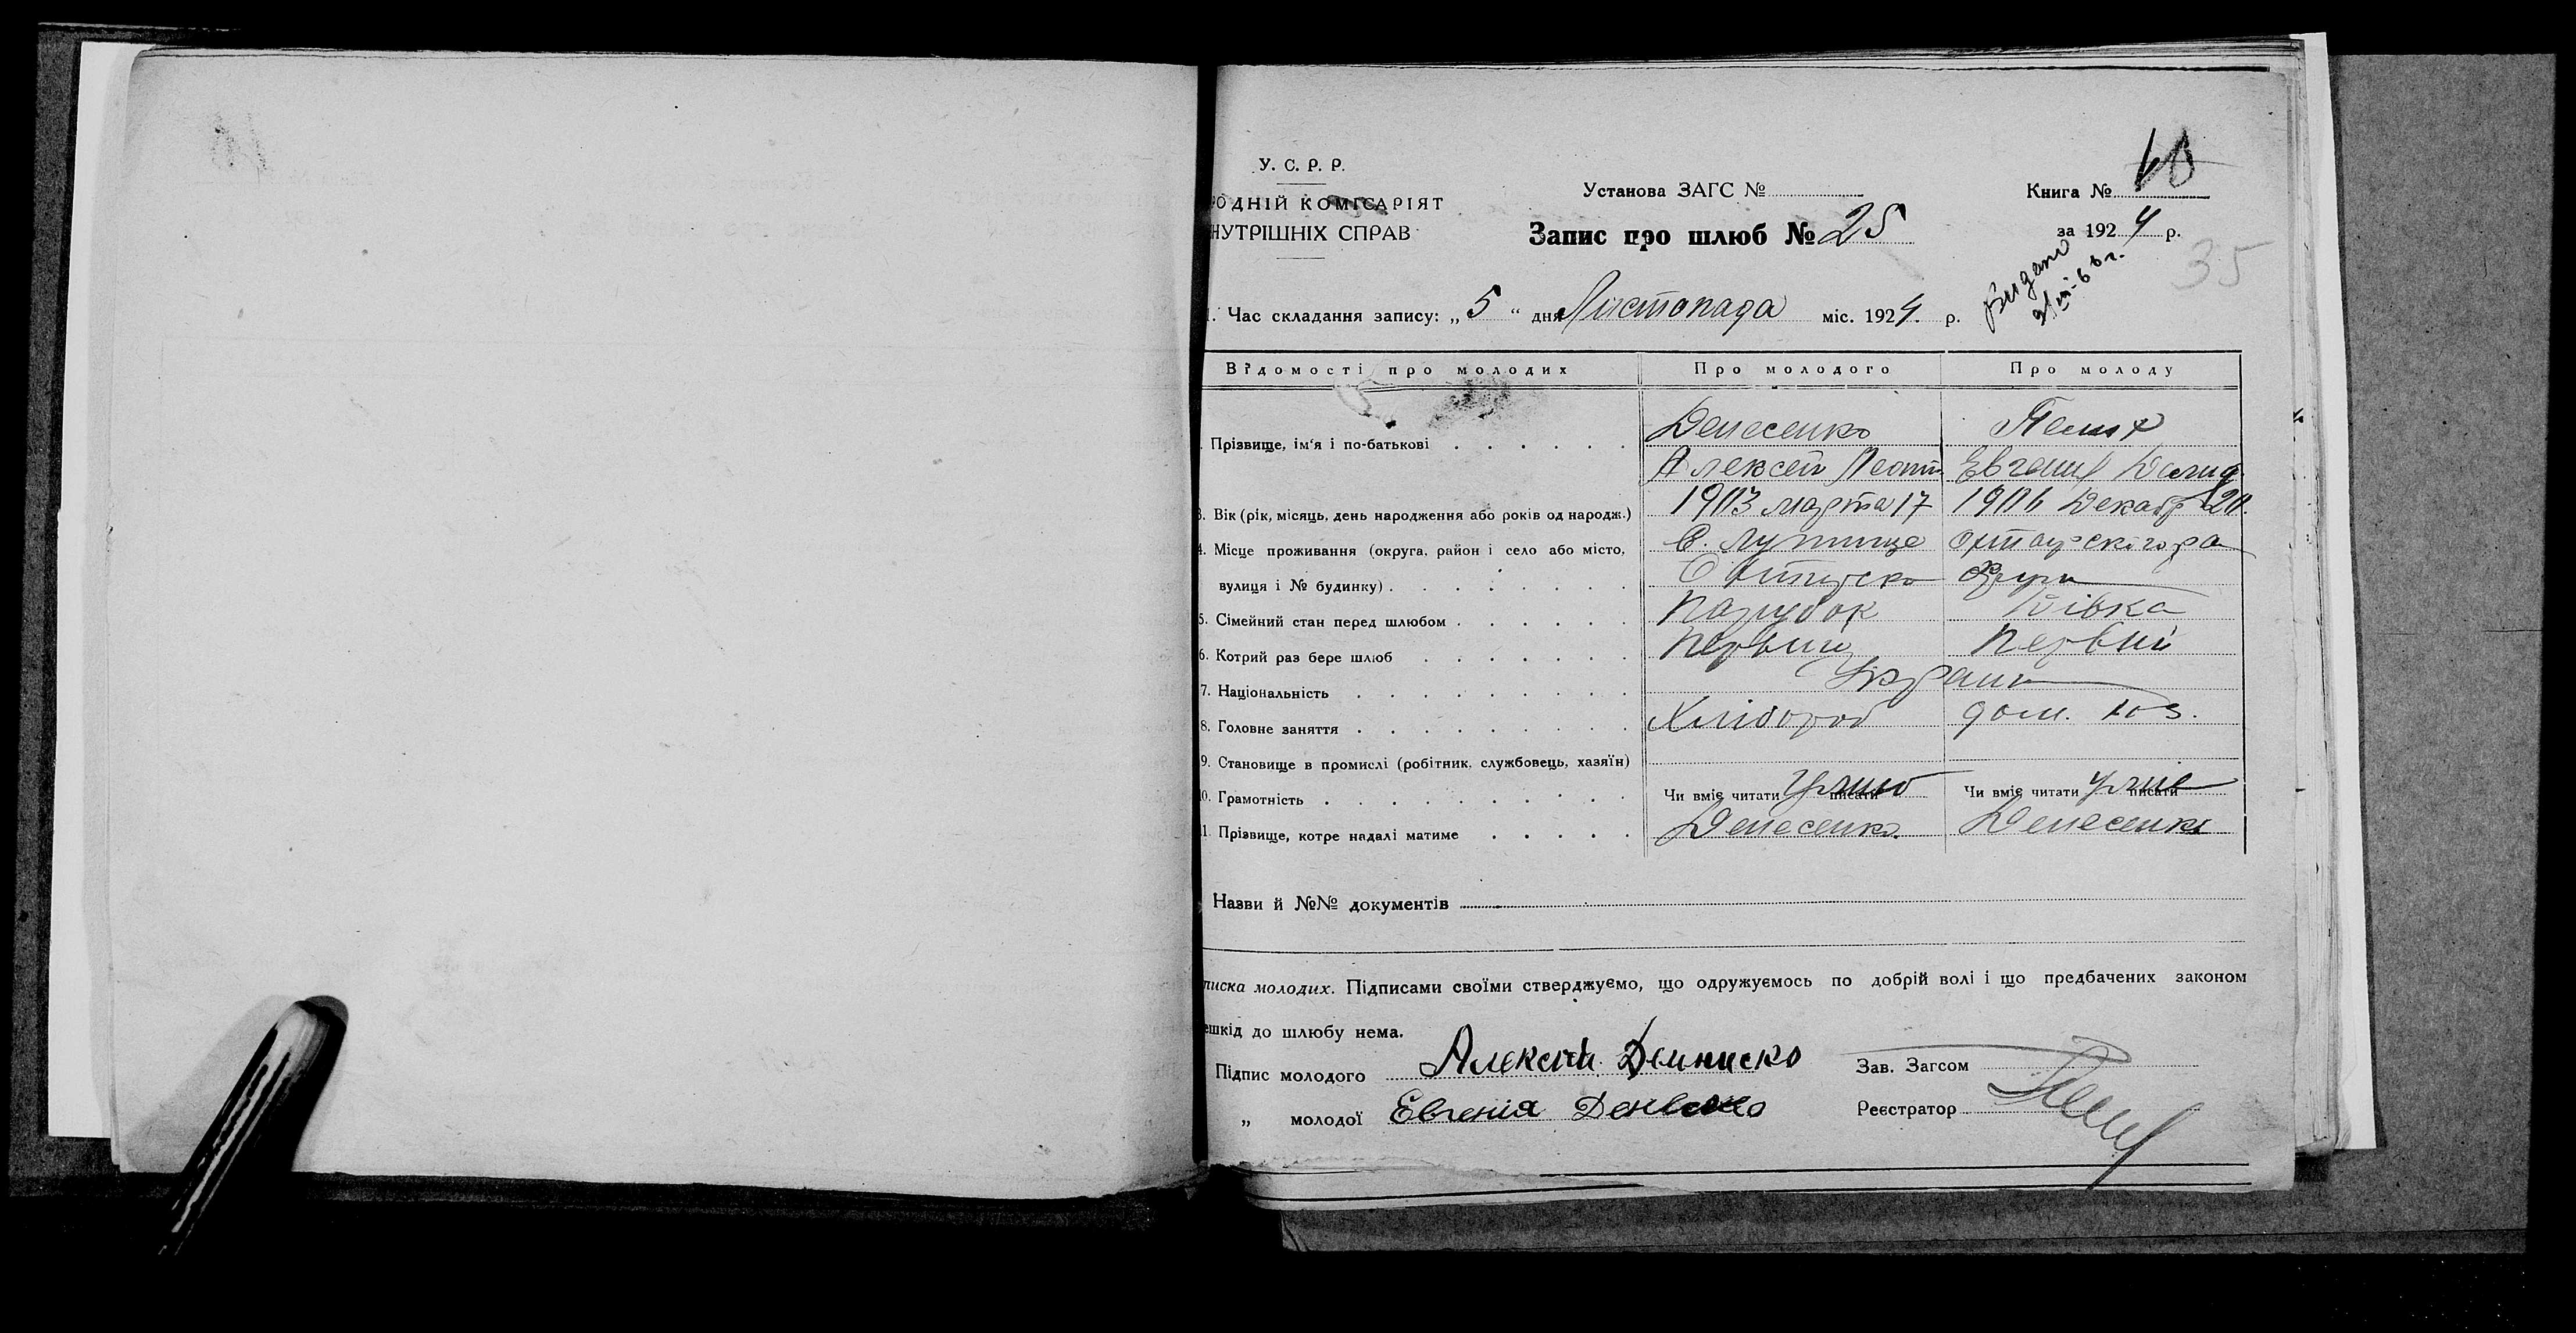 У. С. Р. Р.
ОДНІЙ КОМІСАРІЯТ
НУТРІШНІХ СПРАВ
Установа ЗАГС №
Запис про шлюб № 25
Книга №
за 1924 р.
35
Видано
1. Час складання запису: „5“ дня Листопада міс. 1924. р.
Відомості про молодих Про молодого Про молоду
Прізвище, ім'я і по-батькові Денесенко
Алексей Леонт Евгения
3. Вік (рік, місяць, день народження або років од народж.) 1903 марта 17 1906 Декабр 20.
4. Місце проживання (округа, район і село або місто, С. Лутище
вулиця і № будинку)
5. Сімейний стан перед шлюбом Парубок Дівка
6. Котрий раз бере шлюб Первий Первий
7. Національність Украин
8. Головне заняття Хлібороб дом. хоз.
9. Становище в промислі (робітник, службовець, хазяїн)
10. Грамотність Чи вміє читати писати Чи вміє читати писати
11. Прізвище, котре надалі матиме Денесенко. Денесенко
Назви й №№ документів
писка молодих. Підписами своїми стверджуємо, що одружуємось по добрій волі і що предбачених законом
ешкід до шлюбу нема.
Підпис молодого Алексей Зав. Загсом
„ молодої Евгения Реєстратор